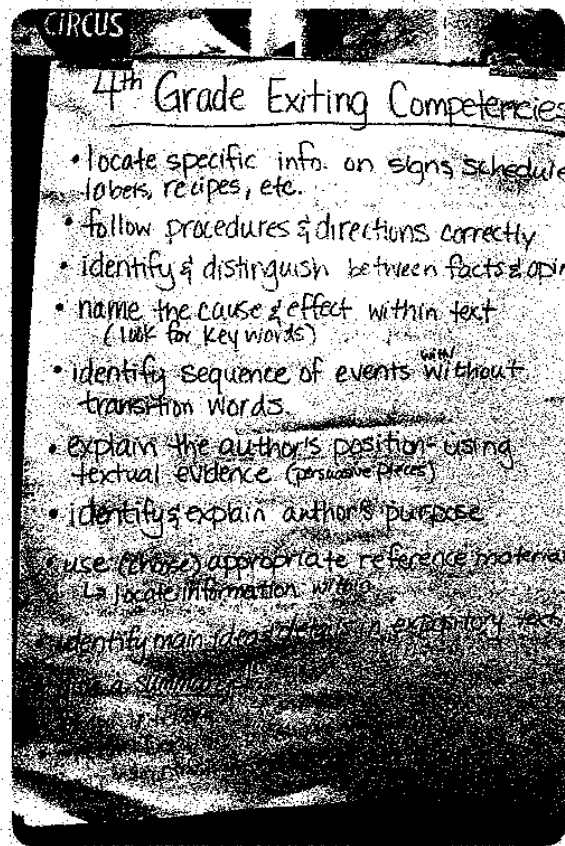 CIRCUS
4th Grade Exiting Competencies
• locate specific info. on signs, schedule
labels, recipes, etc.
• follow procedures & directions correctly
• identify & distinguish between facts & opin
• name the cause & effect within text
(look for key words)
with/
• identify sequence of events without
transition words.
• explain the author's position - using
textual evidence (persuasive pieces)
• identify & explain author's purpose
• use (choose) appropriate reference material
↳ locate information within
• identify main ideas & details in expository text